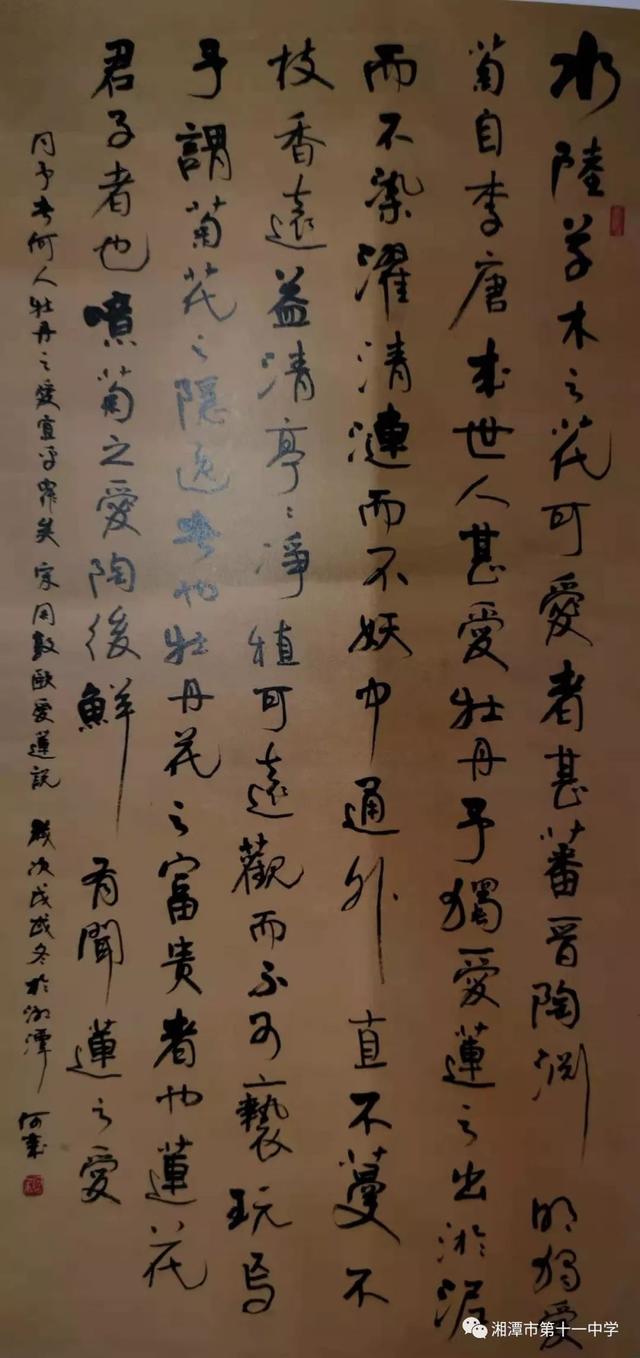 水陸草木之花可愛者甚蕃晋陶淵明獨愛
菊自李唐来世人甚愛牡丹予獨愛蓮之出淤泥
而不染濯清漣而不妖中通外直不蔓不
枝香遠益清亭亭凈植可遠觀而不可褻玩焉
予謂菊花之隱逸者也牡丹花之富貴者也蓮花
君子者也噫菊之愛陶後鮮有聞蓮之愛
同予者何人牡丹之愛宜乎衆矣 宋周敦頤愛蓮説 歲次戊戌冬於湘潭
湘潭市第十一中学